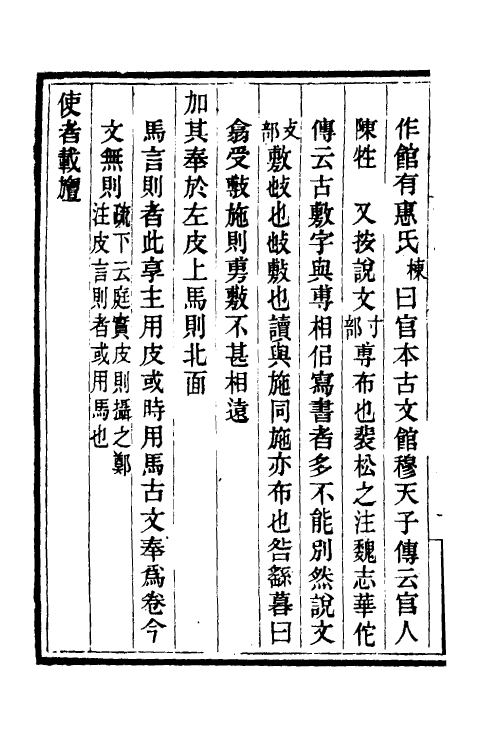 作館有惠氏棟曰官本古文館穆天子傳云官人
陳牲　又按說文寸部尃布也裴松之注魏志華佗
傳云古敷字與尃相佀寫書者多不能別然說文
攴部敷𢻱也𢻱敷也讀與施同施亦布也咎繇暮曰
翕受敷施則尃敷不甚相遠
加其奉於左皮上馬則北面
馬言則者此享主用皮或時用馬古文奉爲卷今
文無則疏下云庭實皮則攝之鄭注皮言則者或用馬也
使者載旜